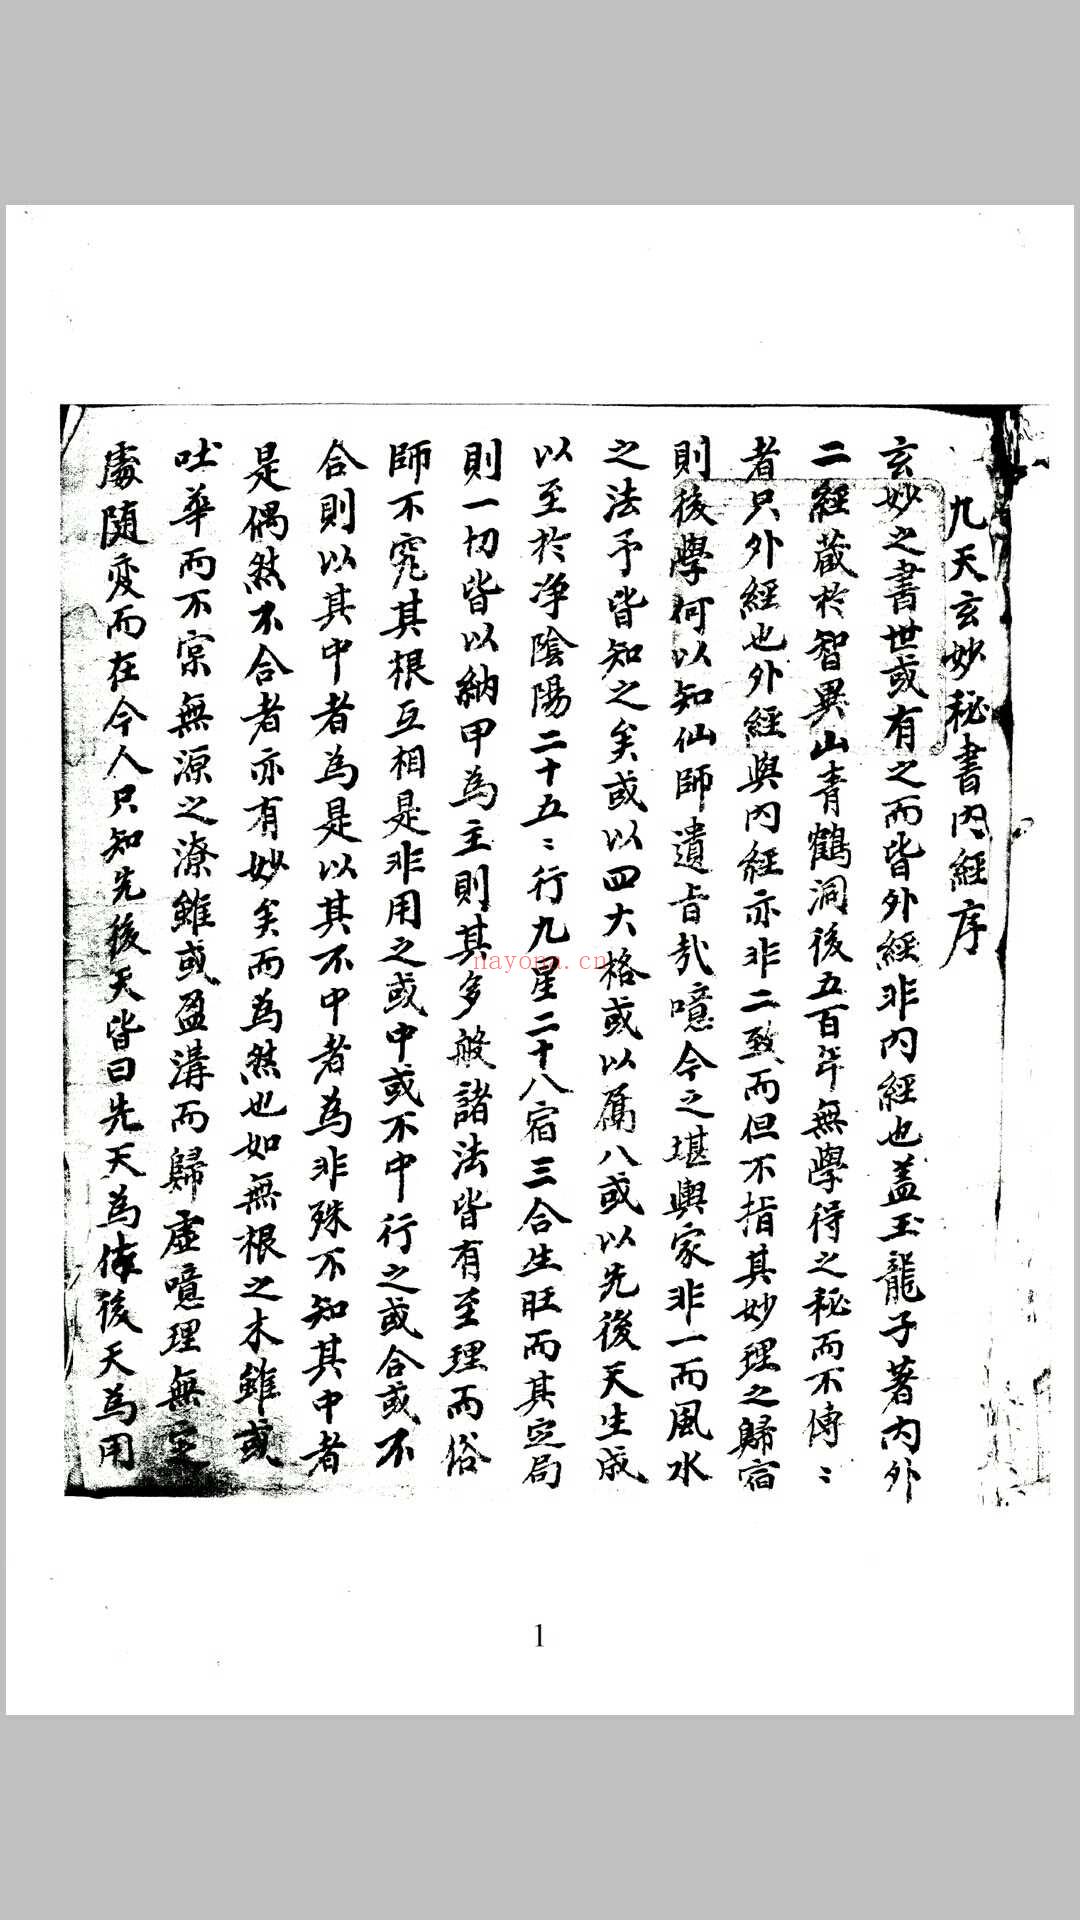 九天玄妙秘書內經序
玄妙之書世或有之而皆外經非內經也盖玉龍子著內外
二經藏於智異山青鶴洞後五百年無學得之秘而不傳〻
者只外經也外經與內經亦非二致而但不指其妙理之歸宿
則後學何以知仙師遺旨㢤噫今之堪輿家非一而風水
之法予皆知之矣或以四大格或以屬八或以先後天生成
以至於净陰陽二十五〻行九星二十八宿三合生旺而其定局
則一切皆以納甲為主則其多般諸法皆有至理而俗
師不究其根互相是非用之或中或不中行之或合或不
合則以其中者為是以其不中者為非殊不知其中者
是偶然不合者亦有妙矣而為然也如無根之木雖或
吐華而不宲無源之潦雖或盈溝而歸虛噫理無定
處随变而在今人只知先後天皆曰先天為体後天為用
nayona.cn
1